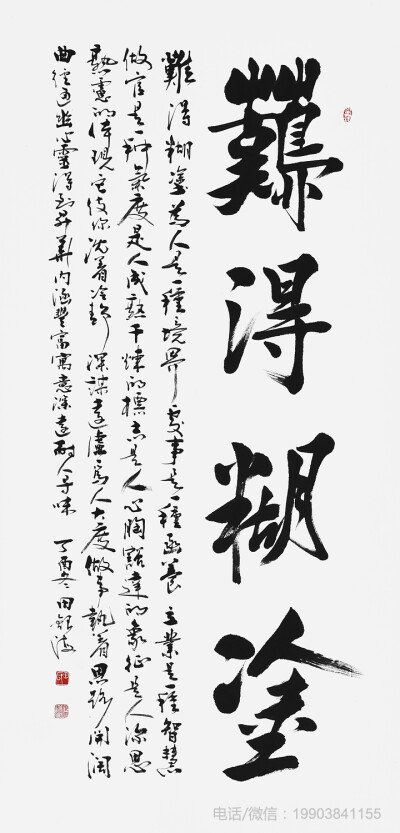 難得糊塗
難得糊塗為人是一種境界處事是一種涵養立業是一種智慧
做官是一种氣度是人成熟干煉的標志是人心胸豁達的象征是人深思
熟慮的体現它使你沈着冷静深謀遠慮爲人大度做事執着思路開闊
曲徑通幽心靈得到昇華内涵豐富寓意深遠耐人寻味 丁酉冬 田
电话/微信：19903841155